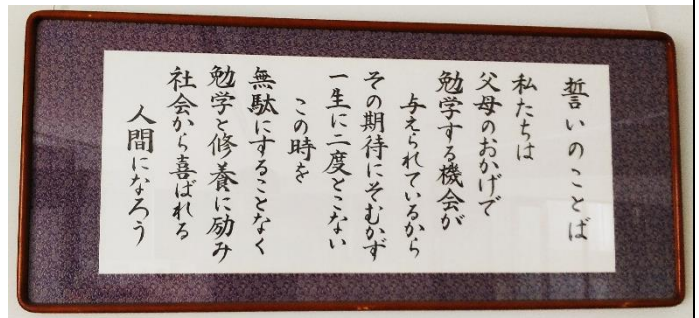 誓いのことば
私たちは
父母のおかげで
勉学する機会が
与えられているから
その期待にそむかず
一生に二度とこない
この時を
無駄にすることなく
勉学と修養に励み
社会から喜ばれる
人間になろう